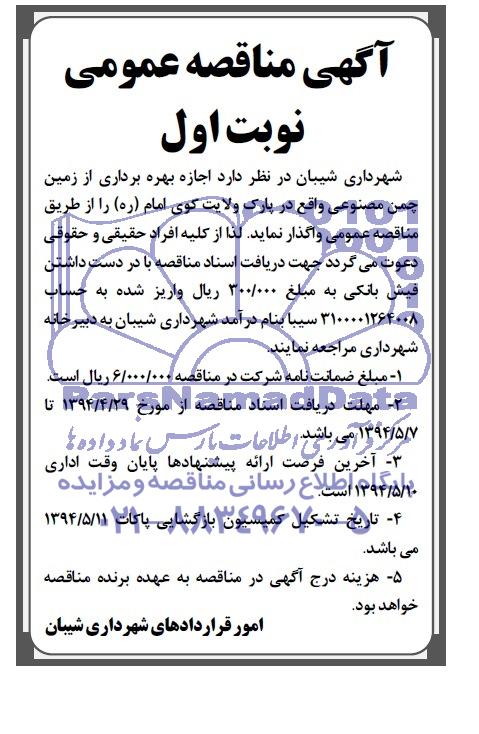 آگهی مناقصه عمومی
نوبت اول
شهرداری شیبان در نظر دارد اجازه بهره برداری از زمین
چمن مصنوعی واقع در پارک ولایت کوی امام (ره) را از طریق
مناقصه عمومی واگذار نماید. لذا از کلیه افراد حقیقی و حقوقی
دعوت می گردد جهت دریافت اسناد مناقصه با در دست داشتن
فیش بانکی به مبلغ ۳۰۰/۰۰۰ ریال واریز شده به حساب
۳۱۰۰۰۰۱۲۶۴۰۰۸ سیبا بنام درآمد شهرداری شیبان به دبیرخانه
شهرداری مراجعه نمایند.
۱- مبلغ ضمانت نامه شرکت در مناقصه ۶/۰۰۰/۰۰۰ ریال است.
ParsNamadData
۲- مهلت دریافت اسناد مناقصه از مورخ ۱۳۹۴/۴/۲۹ تا
۱۳۹۴/۵/۷ می باشد.
مرکز فرآوری اطلاعات پارس نماد داده ها
۳- آخرین فرصت ارائه پیشنهادها پایان وقت اداری
پایگاه اطلاع رسانی مناقصه و مزایده
۱۳۹۴/۵/۱۰ است.
۴- تاریخ تشکیل کمیسیون بازگشایی پاکات ۱۳۹۴/۵/۱۱
۰۲۱-۸۸۳۴۹۶۷۰-۵
می باشد.
۵- هزینه درج آگهی در مناقصه به عهده برنده مناقصه
خواهد بود.
امور قراردادهای شهرداری شیبان